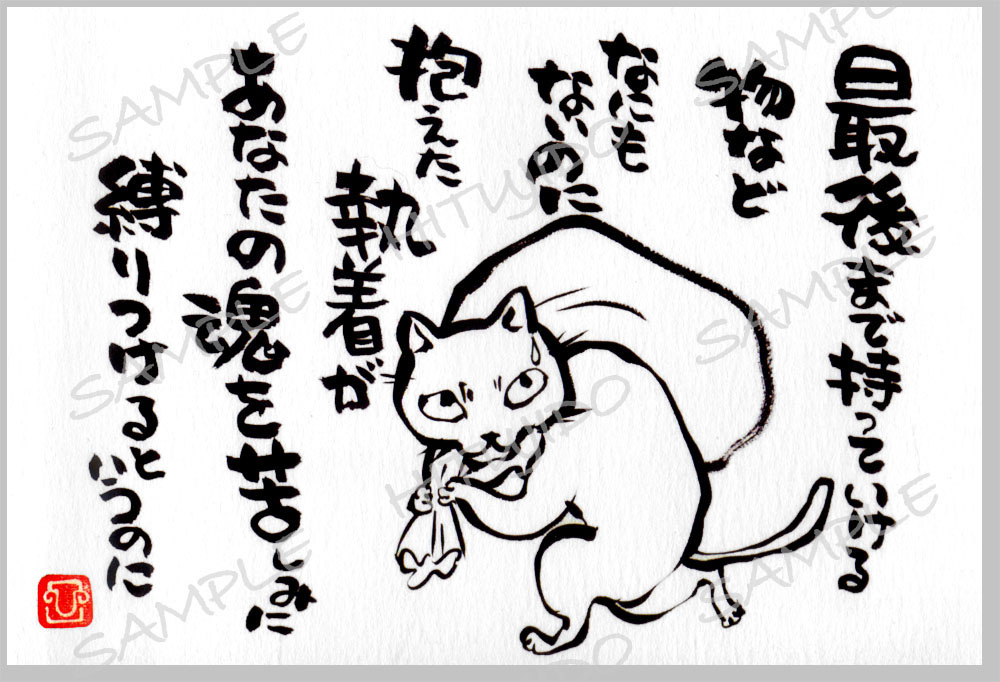 最後まで持っていける
物など
なにも
ないのに
抱えた
執着が
あなたの魂を苦しみに
縛りつけると
いうのに
SAMPLE
SAMPLE
SAMPLE
SAMPLE
SAMPLE
SAMPLE
SAMPLE
HITUJIDO
HITUJIDO